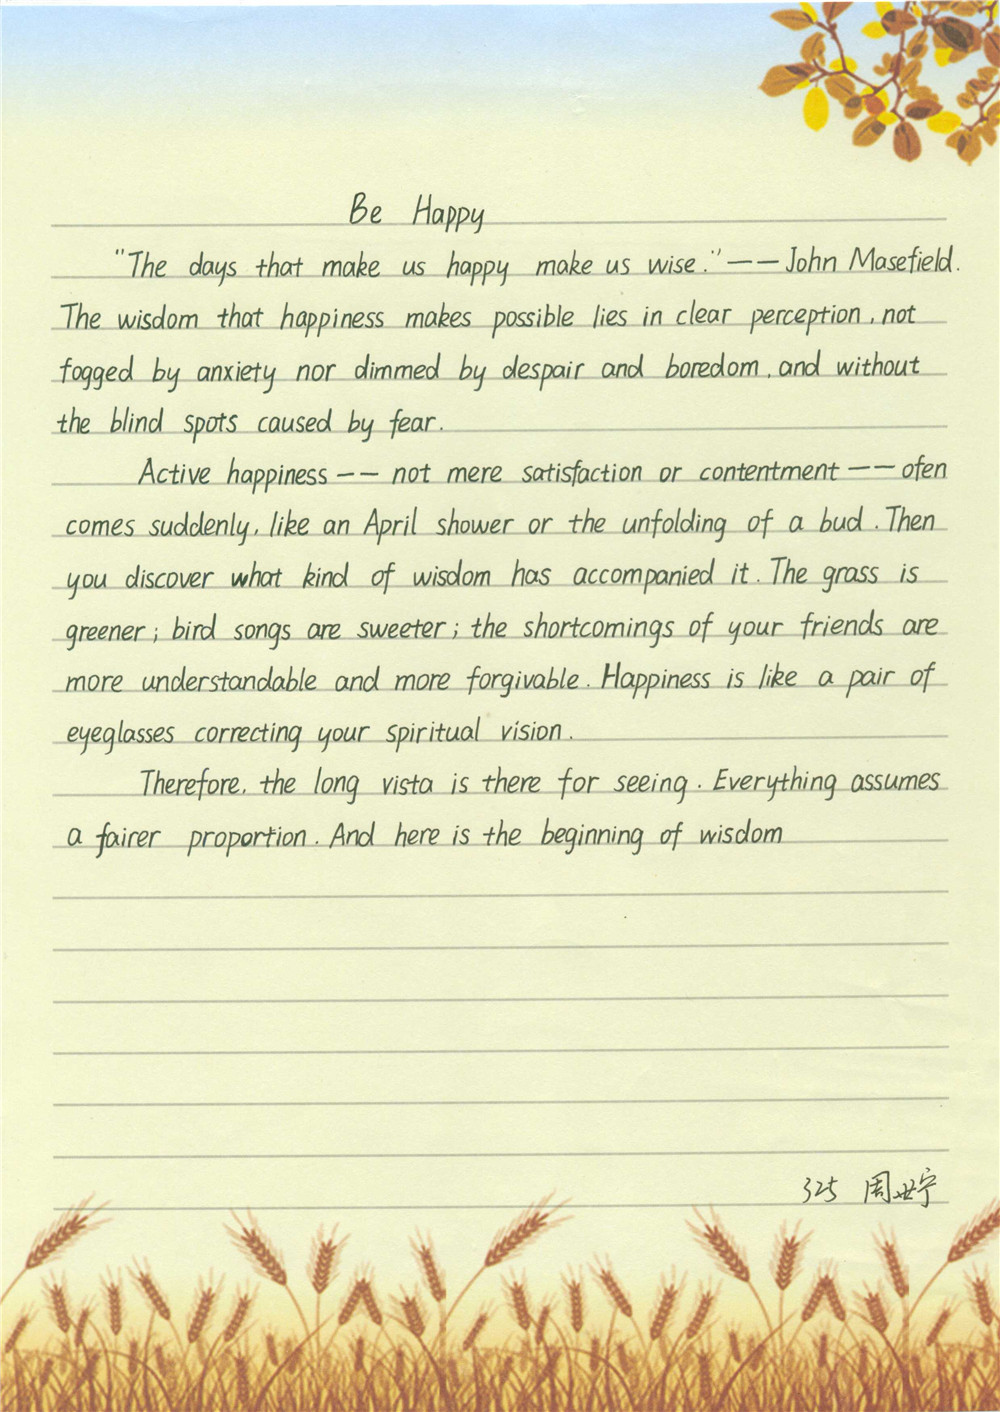 Be Happy
"The days that make us happy make us wise." —— John Masefield.
The wisdom that happiness makes possible lies in clear perception, not
fogged by anxiety nor dimmed by despair and boredom, and without
the blind spots caused by fear.
Active happiness —— not mere satisfaction or contentment —— ofen
comes suddenly, like an April shower or the unfolding of a bud. Then
you discover what kind of wisdom has accompanied it. The grass is
greener; bird songs are sweeter; the shortcomings of your friends are
more understandable and more forgivable. Happiness is like a pair of
eyeglasses correcting your spiritual vision.
Therefore, the long vista is there for seeing. Everything assumes
a fairer proportion. And here is the beginning of wisdom
325 周世宁